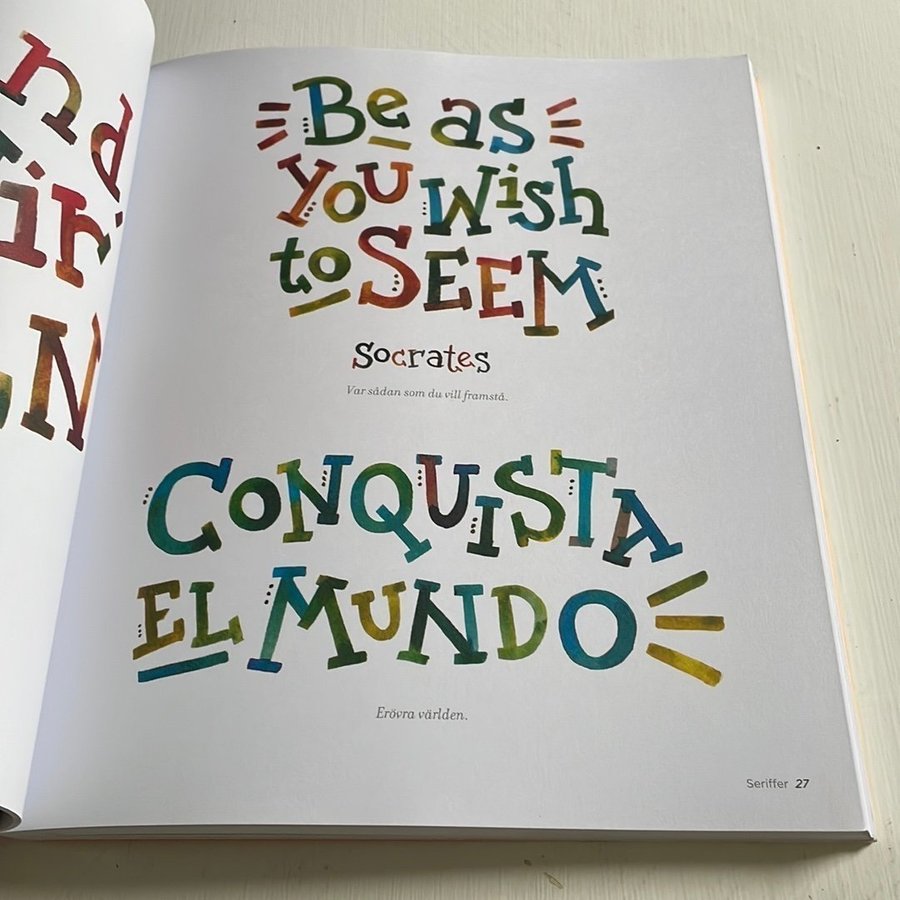 Be as
You Wish
to SEEM
Socrates
Var sådan som du vill framstå.
CONQUISTA
EL MUNDO
Erövra världen.
Seriffer 27